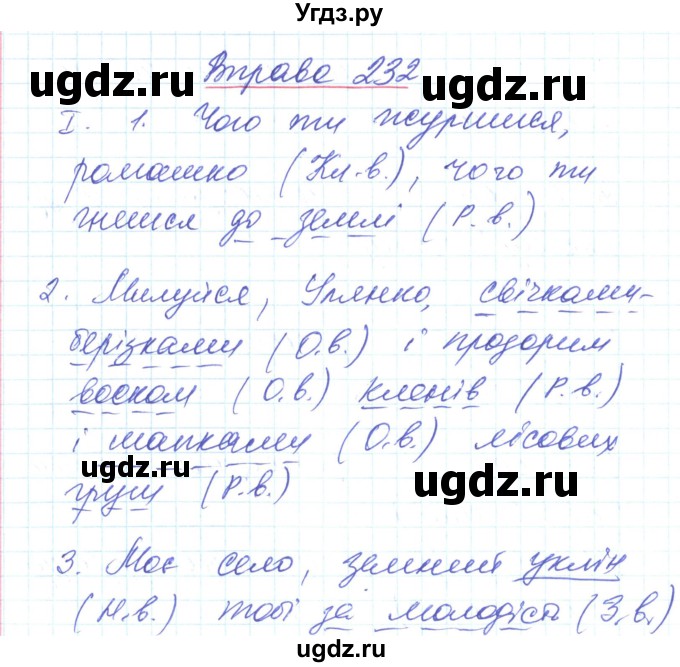 Угдз.ру
Вправа 232
I. 1. Чого ти журишся,
ромашко (Кл.в.), чого ти
гнешся до землі (Р.в.)
2. Милуйся, Улянко, свічками-
берізками (О.в.) і прозорим
воском (О.в.) кленів (Р.в.)
і шапками (О.в.) лісових
груш (Р.в.)
3. Моє село, земний уклін
(Н.в.) тобі за молодість (З.в.)
ugdz.ru
ugdz.ru
ugdz.ru
ugdz.ru
ugdz.ru
ugdz.ru
ugdz.ru
ugdz.ru